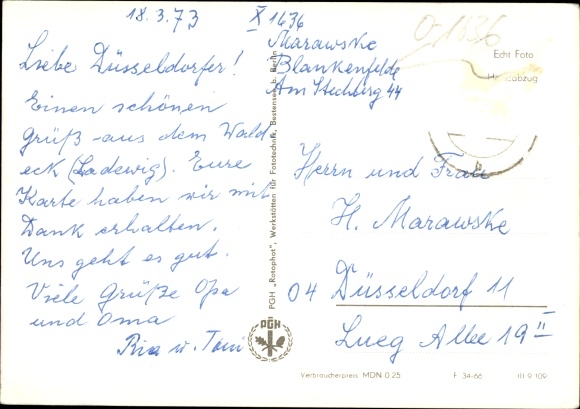 18.3.73
Liebe Düsseldorfer!
Einen schönen
Grüß aus dem Wald
eck (Ladewig). Eure
Karte haben wir mit
Dank erhalten.
Uns geht es gut.
Viele Grüße Opa
und Oma
Ria u. Toni
X 1636
Marawske
Blankenfelde
Am Stechberg 44
O-1636
Echt Foto
Handabzug
Herrn und Frau
H. Marawske
04 Düsseldorf 11
Lueg Allee 19 II
PGH „Rotophot", Werkstätten für Fototechnik, Bestensee b. Berlin
PGH
Verbraucherpreis MDN 0.25
F 34-66
III 9 109